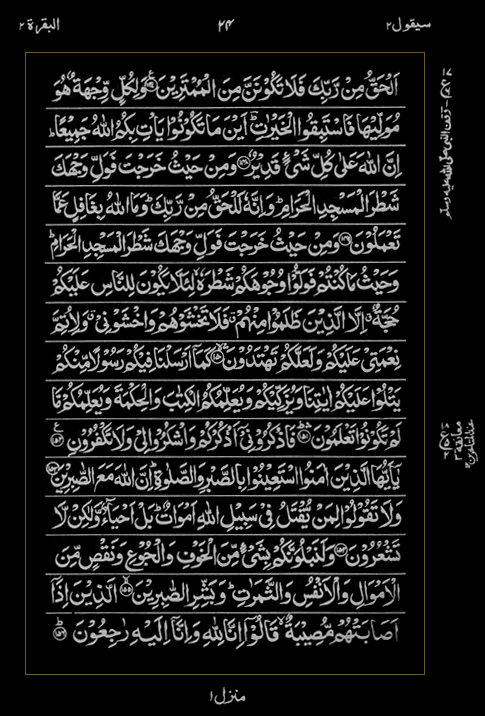 سيقول٢ ٢٤ البقرة ٢
اَلْحَقُّ مِنْ رَّبِّكَ فَلَا تَكُوْنَنَّ مِنَ الْمُمْتَرِيْنَ ﴿۱۴۷﴾ وَلِكُلٍّ وِّجْهَةٌ هُوَ
مُوَلِّيْهَا فَاسْتَبِقُوا الْخَيْرٰتِ ؕ اَيْنَ مَا تَكُوْنُوْا يَاْتِ بِكُمُ اللّٰهُ جَمِيْعًا ؕ
اِنَّ اللّٰهَ عَلٰى كُلِّ شَىْءٍ قَدِيْرٌ ﴿۱۴۸﴾ وَمِنْ حَيْثُ خَرَجْتَ فَوَلِّ وَجْهَكَ
شَطْرَ الْمَسْجِدِ الْحَرَامِ ؕ وَاِنَّهٗ لَلْحَقُّ مِنْ رَّبِّكَ ؕ وَمَا اللّٰهُ بِغَافِلٍ عَمَّا
تَعْمَلُوْنَ ﴿۱۴۹﴾ وَمِنْ حَيْثُ خَرَجْتَ فَوَلِّ وَجْهَكَ شَطْرَ الْمَسْجِدِ الْحَرَامِ ؕ
وَحَيْثُ مَا كُنْتُمْ فَوَلُّوْا وُجُوْهَكُمْ شَطْرَهٗ ۙ لِئَلَّا يَكُوْنَ لِلنَّاسِ عَلَيْكُمْ
حُجَّةٌ ۙ اِلَّا الَّذِيْنَ ظَلَمُوْا مِنْهُمْ ۗ فَلَا تَخْشَوْهُمْ وَاخْشَوْنِىْ ۗ وَلِاُتِمَّ
نِعْمَتِىْ عَلَيْكُمْ وَلَعَلَّكُمْ تَهْتَدُوْنَ ﴿۱۵۰﴾ كَمَاۤ اَرْسَلْنَا فِيْكُمْ رَسُوْلًا مِّنْكُمْ
يَتْلُوْا عَلَيْكُمْ اٰيٰتِنَا وَيُزَكِّيْكُمْ وَيُعَلِّمُكُمُ الْكِتٰبَ وَالْحِكْمَةَ وَيُعَلِّمُكُمْ مَّا
لَمْ تَكُوْنُوْا تَعْلَمُوْنَ ﴿۱۵۱﴾ فَاذْكُرُوْنِىْۤ اَذْكُرْكُمْ وَاشْكُرُوْا لِىْ وَلَا تَكْفُرُوْنِ ﴿۱۵۲﴾
يٰۤاَيُّهَا الَّذِيْنَ اٰمَنُوا اسْتَعِيْنُوْا بِالصَّبْرِ وَالصَّلٰوةِ ؕ اِنَّ اللّٰهَ مَعَ الصّٰبِرِيْنَ ﴿۱۵۳﴾
وَلَا تَقُوْلُوْا لِمَنْ يُّقْتَلُ فِىْ سَبِيْلِ اللّٰهِ اَمْوَاتٌ ؕ بَلْ اَحْيَآءٌ وَّلٰكِنْ لَّا
تَشْعُرُوْنَ ﴿۱۵۴﴾ وَلَنَبْلُوَنَّكُمْ بِشَىْءٍ مِّنَ الْخَوْفِ وَالْجُوْعِ وَنَقْصٍ مِّنَ
الْاَمْوَالِ وَالْاَنْفُسِ وَالثَّمَرٰتِ ؕ وَبَشِّرِ الصّٰبِرِيْنَ ﴿۱۵۵﴾ الَّذِيْنَ اِذَاۤ
اَصَابَتْهُمْ مُّصِيْبَةٌ ۙ قَالُوْۤا اِنَّا لِلّٰهِ وَاِنَّاۤ اِلَيْهِ رٰجِعُوْنَ ﴿۱۵۶﴾
وقف النبي صلى الله عليه وسلم
معانقة
منزل۱